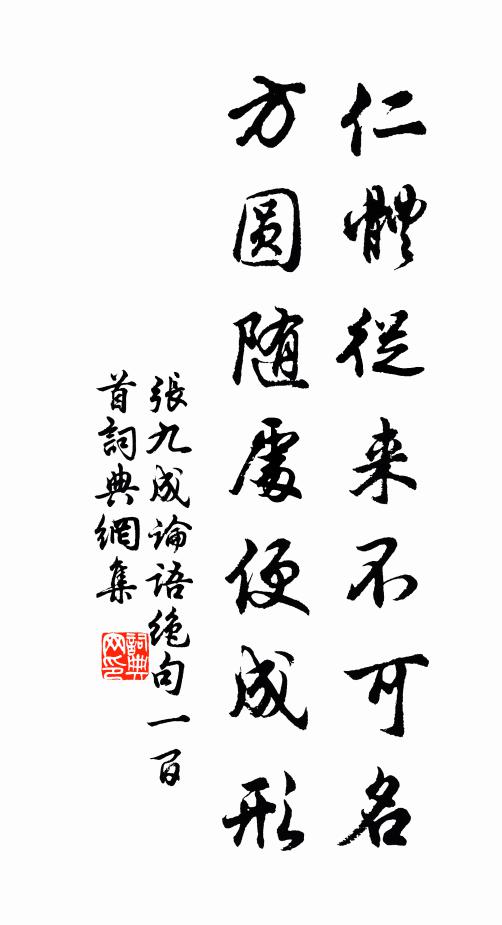 仁體從来不可名
方圆随處便成形
張九成論語絶句一百
首詞典網集
詞典网印